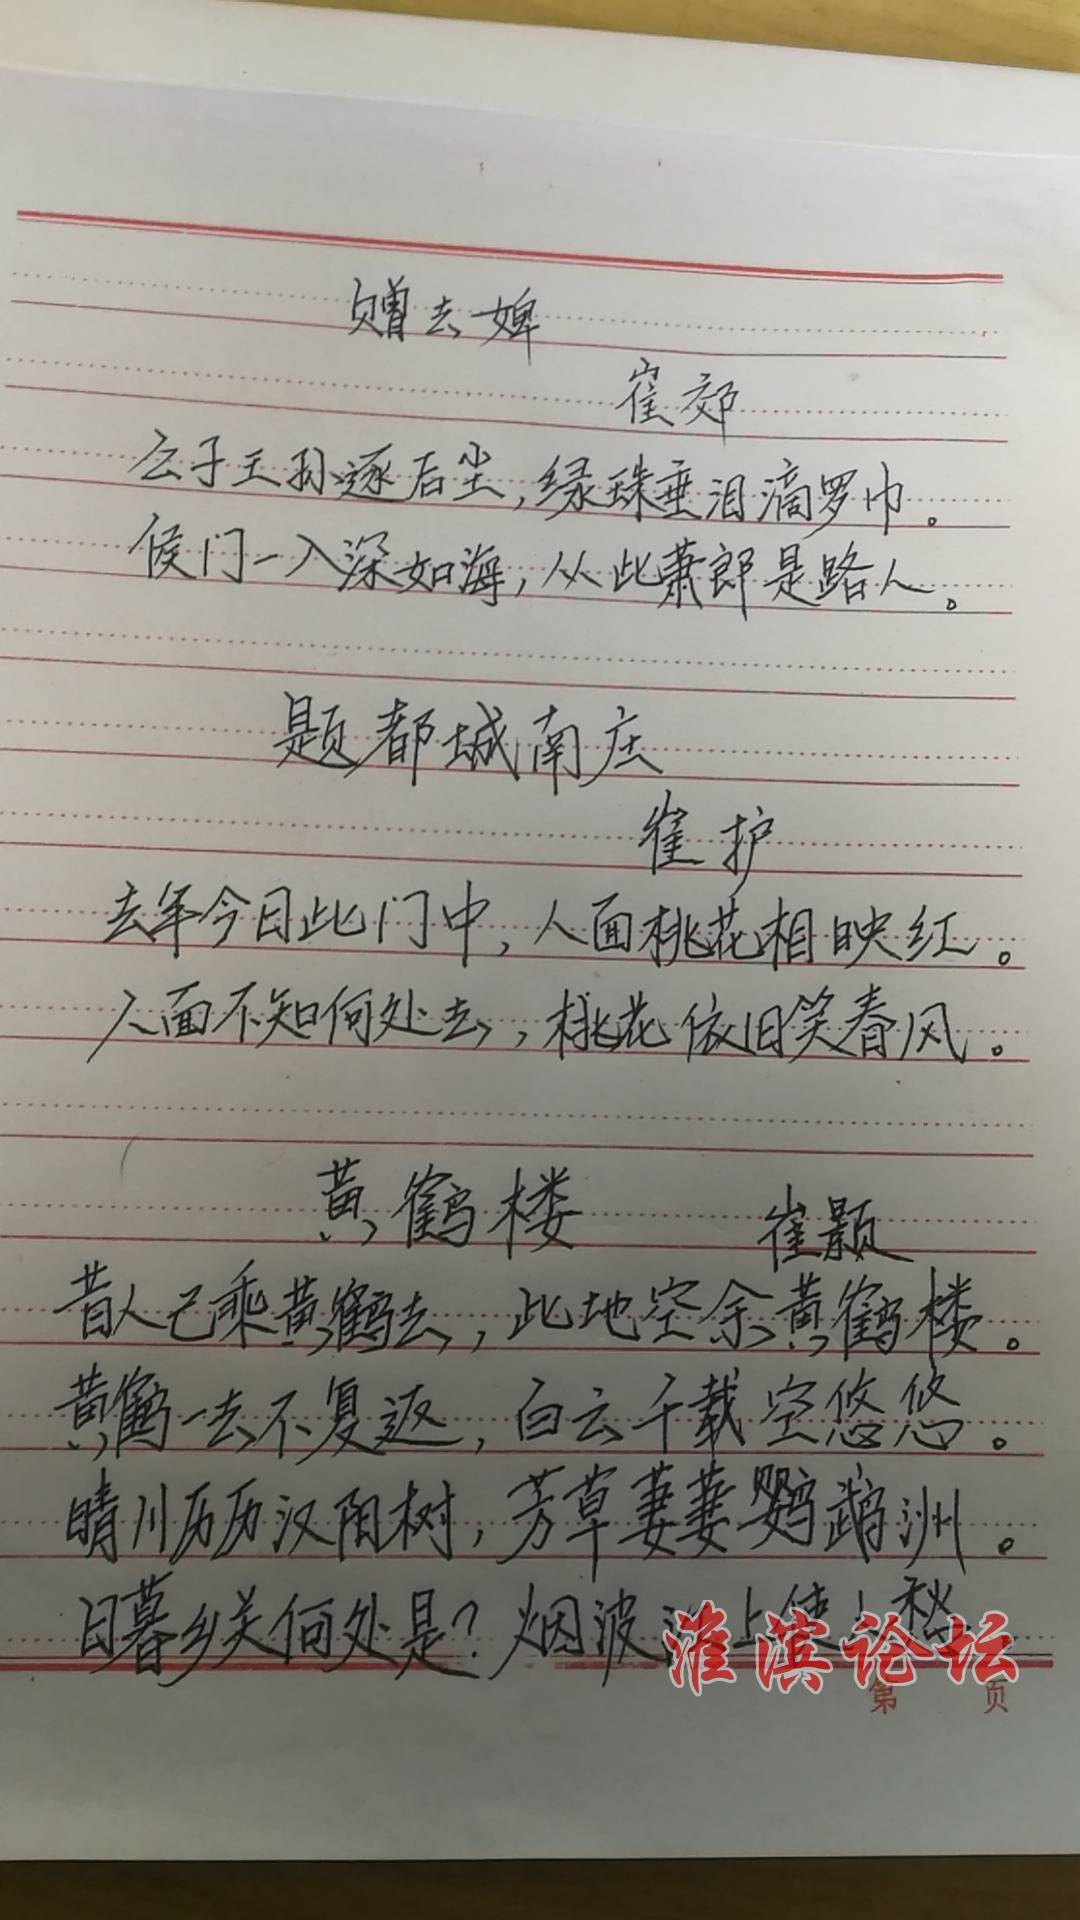 赠去婢
崔郊
公子王孙逐后尘，绿珠垂泪滴罗巾。
侯门一入深如海，从此萧郎是路人。
题都城南庄
崔护
去年今日此门中，人面桃花相映红。
人面不知何处去，桃花依旧笑春风。
黄鹤楼 崔颢
昔人已乘黄鹤去，此地空余黄鹤楼。
黄鹤一去不复返，白云千载空悠悠。
晴川历历汉阳树，芳草萋萋鹦鹉洲。
日暮乡关何处是？烟波江上使人愁
淮滨论坛
第 页